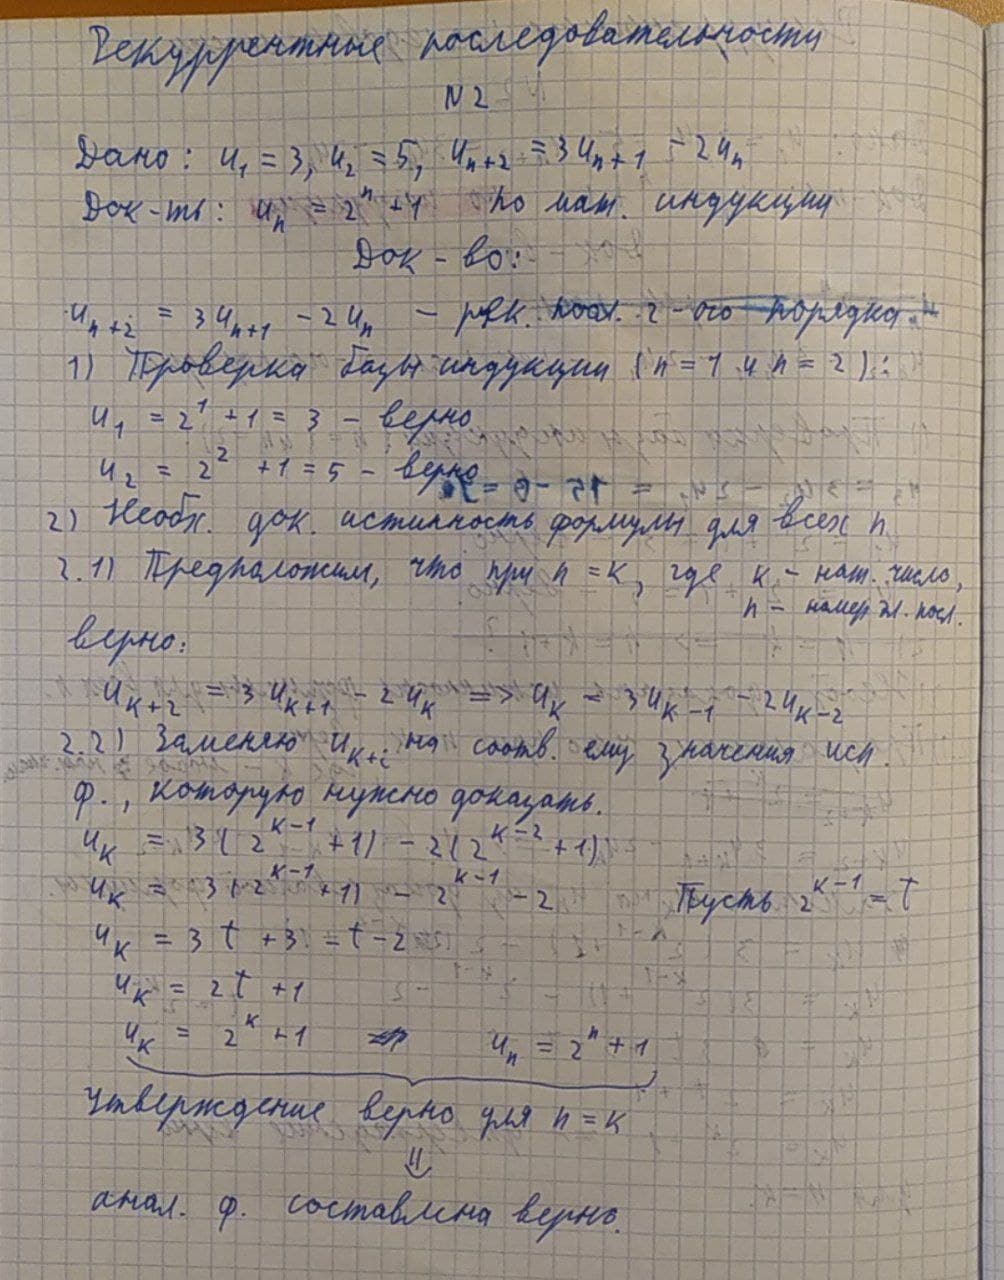 Рекуррентные последовательности
N2
Дано: u₁ = 3, u₂ = 5, uₙ₊₂ = 3uₙ₊₁ - 2uₙ
Док-ть: uₙ = 2ⁿ + 1 по мат. индукции
Док-во:
uₙ₊₂ = 3uₙ₊₁ - 2uₙ - рек. посл. 2-ого порядка.
1) Проверка базы индукции (n = 1 и n = 2):
u₁ = 2¹ + 1 = 3 - верно
u₂ = 2² + 1 = 5 - верно
2) Необх. док. истинность формулы для всех n.
2.1) Предположим, что при n = k, где k - нат. число,
n - номер эл. посл.
верно:
u_{k+2} = 3u_{k+1} - 2u_k => u_k = 3u_{k-1} - 2u_{k-2}
2.2) Заменяю u_{k+i} на соотв. ему значения исп.
ф., которую нужно доказать.
u_k = 3(2^{k-1} + 1) - 2(2^{k-2} + 1)
u_k = 3(2^{k-1} + 1) - 2^{k-1} - 2 Пусть 2^{k-1} = t
u_k = 3t + 3 - t - 2
u_k = 2t + 1
u_k = 2^k + 1 uₙ = 2ⁿ + 1
Утверждение верно для n = k
⇓
анал. ф. составлена верно.